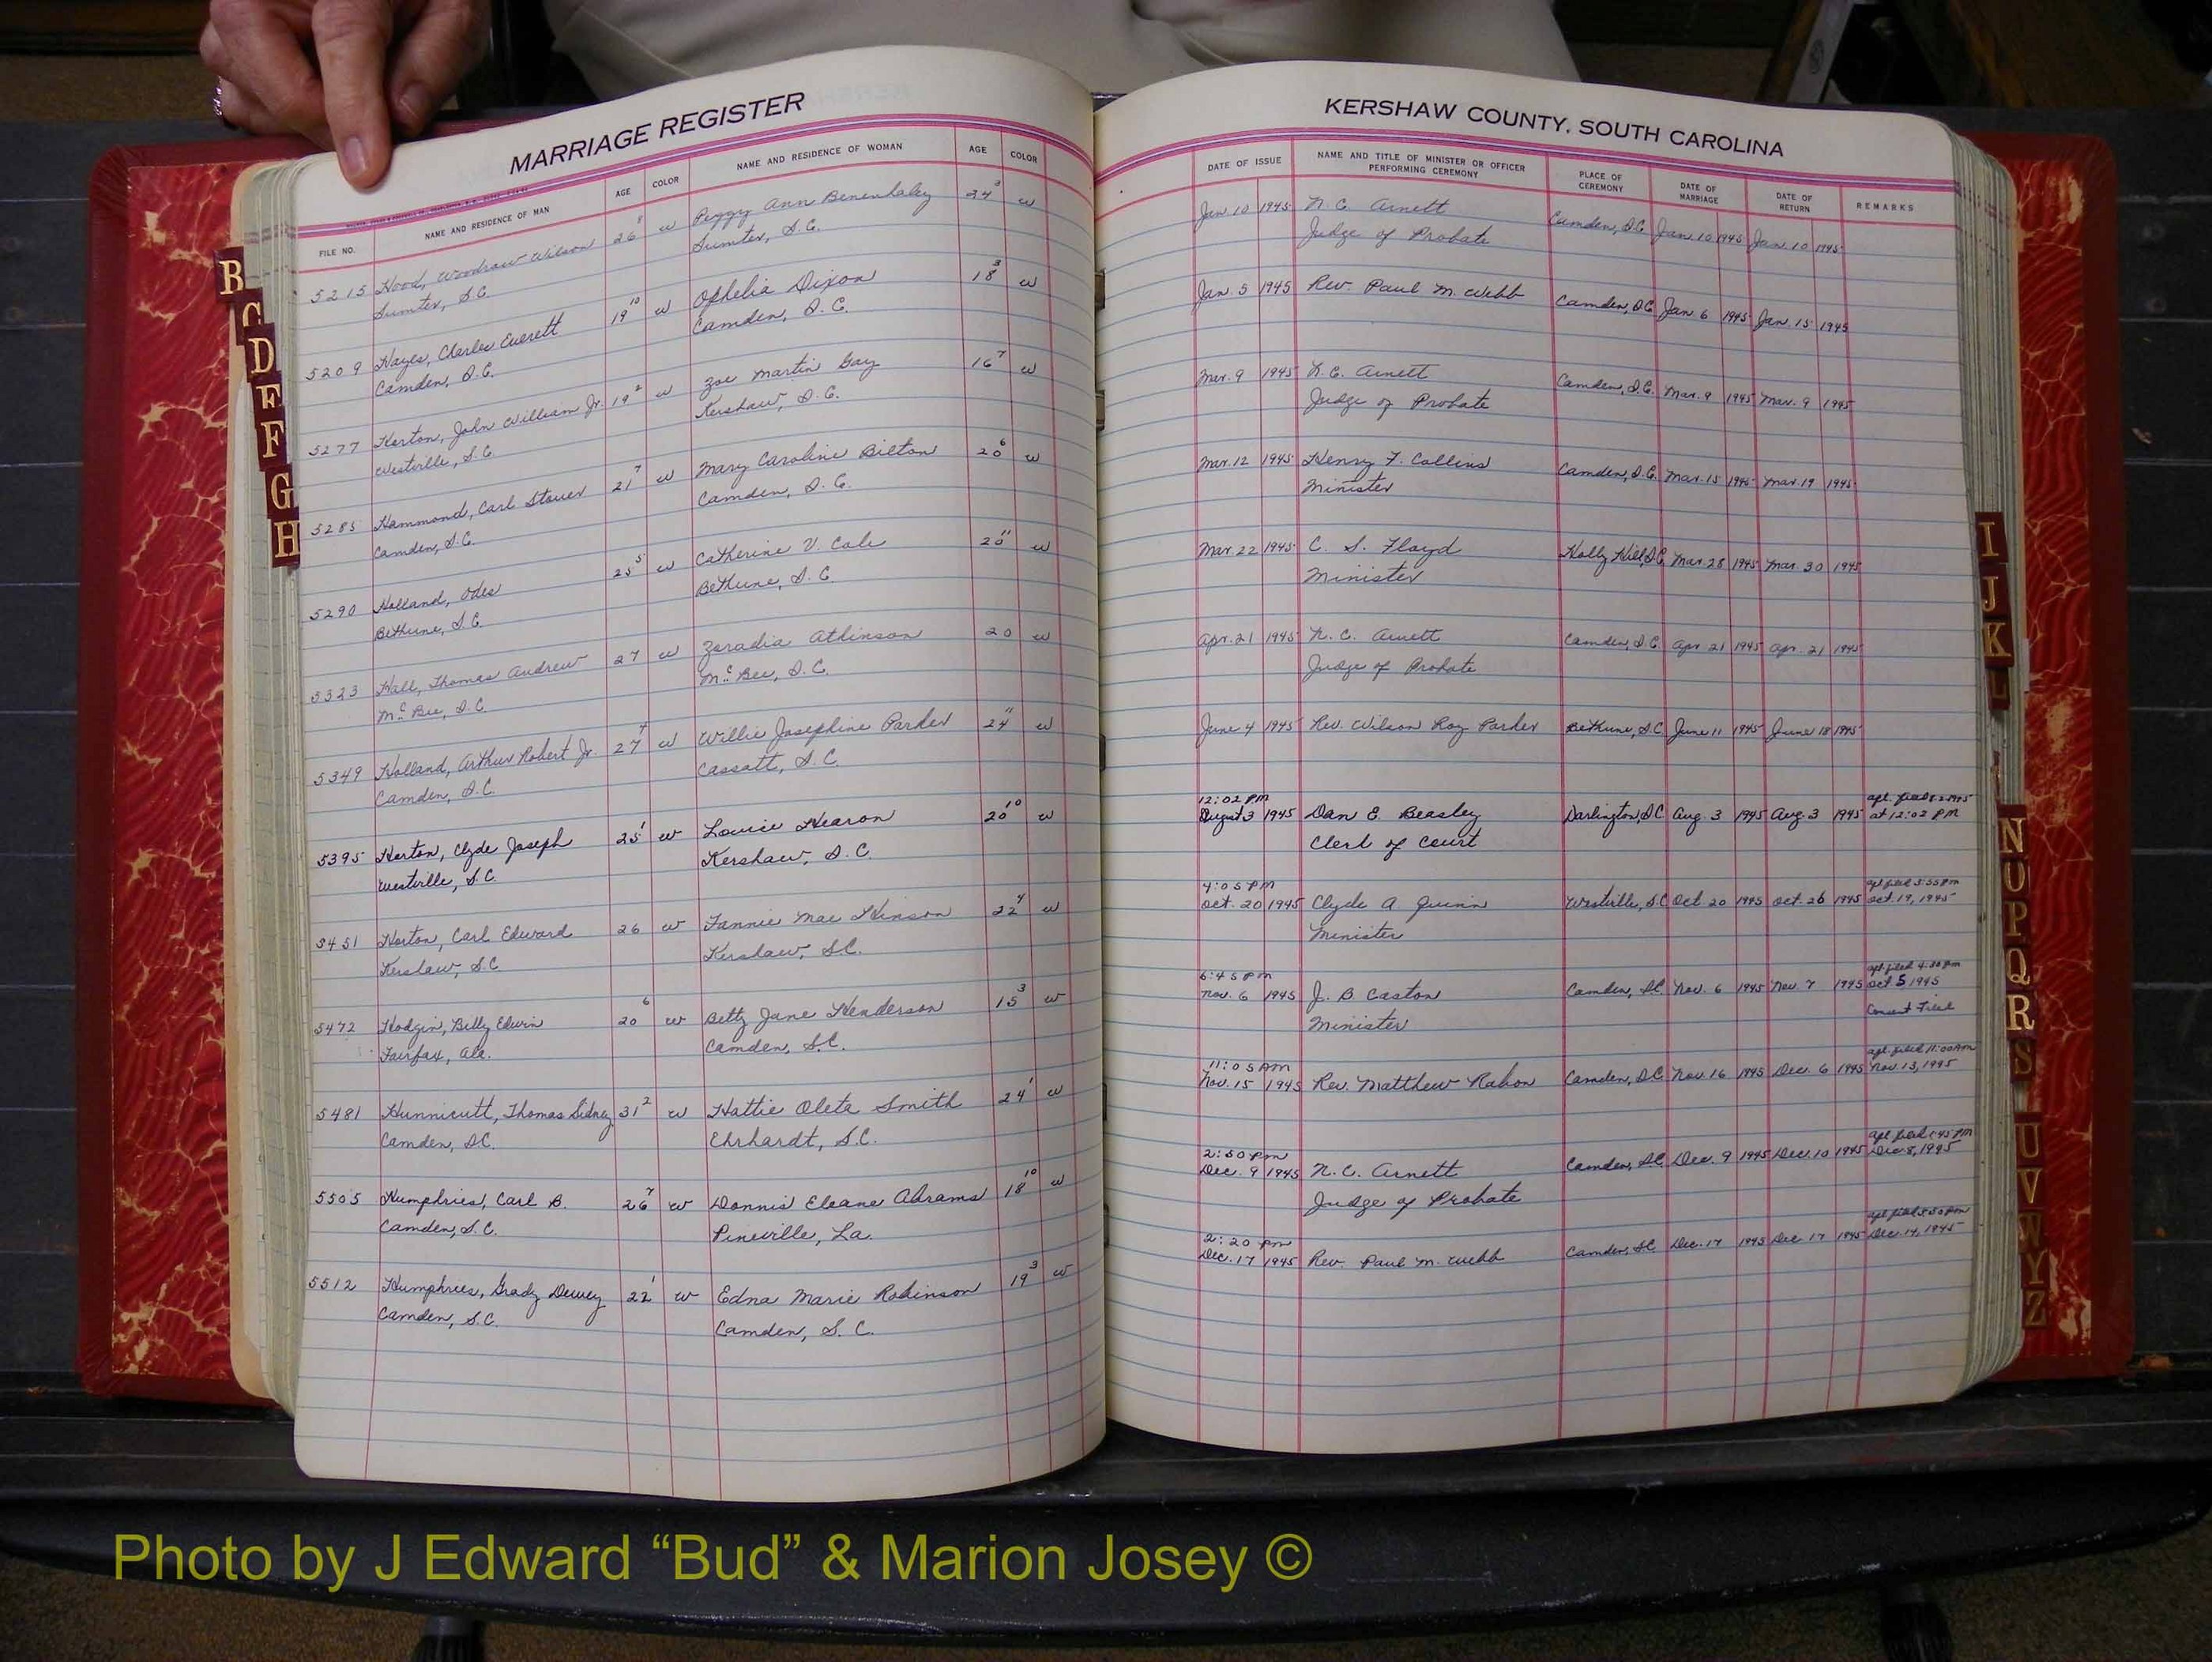 MARRIAGE REGISTER
FILE NO. NAME AND RESIDENCE OF MAN AGE COLOR NAME AND RESIDENCE OF WOMAN AGE COLOR
5215 Hood, Woodrow Wilson 26 8 w Peggy Ann Benenhaley 24 3 w
Sumter, S.C. Sumter, S.C.
5209 Hayes, Charles Everett 19 10 w Ophelia Dixon 18 3 w
Camden, S.C. Camden, S.C.
5277 Horton, John William Jr. 19 2 w Zoe Martin Gay 16 7 w
Westville, S.C. Kershaw, S.C.
5285 Hammond, Carl Stover 21 7 w Mary Caroline Bilton 20 6 w
Camden, S.C. Camden, S.C.
5290 Holland, Odes 25 5 w Catherine V. Cale 20 11 w
Bethune, S.C. Bethune, S.C
5323 Hall, Thomas Andrew 27 w Zoradia Atkinson 20 w
McBee, S.C. McBee, S.C.
5349 Holland, Arthur Robert Jr. 27 4 w Willie Josephine Parker 24 11 w
Camden, S.C. Cassatt, S.C.
5395 Horton, Clyde Joseph 25 1 w Louise Hearon 20 10 w
Westville, S.C. Kershaw, S.C.
5451 Horton, Carl Edward 26 w Fannie Mae Hinson 22 4 w
Kershaw, S.C Kershaw, S.C.
5472 Hodgin, Billy Edwin 20 6 w Betty Jane Henderson 15 3 w
Fairfax, Ala. Camden, S.C.
5481 Hunnicutt, Thomas Sidney 31 2 w Hattie Olete Smith 24 1 w
Camden, S.C. Ehrhardt, S.C.
5505 Humphries, Carl B. 26 7 w Donnis Eleane Abrams 18 10 w
Camden, S.C. Pineville, La.
5512 Humphries, Grady Dewey 22 1 w Edna Marie Robinson 19 3 w
Camden, S.C. Camden, S.C.
KERSHAW COUNTY, SOUTH CAROLINA
DATE OF ISSUE NAME AND TITLE OF MINISTER OR OFFICER PERFORMING CEREMONY PLACE OF CEREMONY DATE OF MARRIAGE DATE OF RETURN REMARKS
Jan. 10 1945 N. C. Arnett Camden, S.C. Jan. 10 1945 Jan. 10 1945
Judge of Probate
Jan. 5 1945 Rev. Paul M. Webb Camden, S.C. Jan. 6 1945 Jan. 15 1945
Mar. 9 1945 N. C. Arnett Camden, S.C. Mar. 9 1945 Mar. 9 1945
Judge of Probate
Mar. 12 1945 Henry F. Collins Camden, S.C. Mar. 15 1945 Mar. 19 1945
Minister
Mar. 22 1945 C. S. Floyd Holly Hill, S.C. Mar. 28 1945 Mar. 30 1945
Minister
Apr. 21 1945 N. C. Arnett Camden, S.C. Apr 21 1945 Apr. 21 1945
Judge of Probate
June 4 1945 Rev. Wilson Roy Parker Bethune, S.C. June 11 1945 June 18 1945
12:02 PM apl. filed 8-2-1945
August 3 1945 Dan E. Beasley Darlington, S.C. Aug. 3 1945 Aug. 3 1945 at 12:02 PM
Clerk of Court
4:05 PM apl filed 3:55 Pm
Oct. 20 1945 Clyde A Quinn Westville, S.C Oct 20 1945 Oct. 26 1945 Oct. 19, 1945
Minister
6:45 PM apl filed 4:30 Pm
Nov. 6 1945 J. B. Caston Camden, S.C. Nov. 6 1945 Nov. 7 1945 Oct 5 1945
Minister Consent Filed
11:05 AM apl. filed 11:00 AM
Nov. 15 1945 Rev. Matthew Rabon Camden, S.C. Nov. 16 1945 Dec. 6 1945 Nov. 13, 1945
2:50 pm
Dec. 9 1945 N. C. Arnett Camden, S.C. Dec. 9 1945 Dec. 10 1945 Dec. 8, 1945
Judge of Probate
2:20 pm
Dec. 17 1945 Rev. Paul M. Webb Camden, S.C. Dec. 17 1945 Dec 17 1945 Dec. 14, 1945
B
C
D
E
F
G
H
I
J
K
L
N
O
P
Q
R
S
U
V
W
Y
Z
Photo by J Edward “Bud” & Marion Josey ©